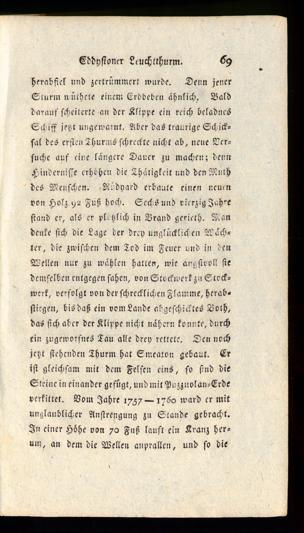 Eddystoner Leuchtthurm. 69
herabfiel und zertrümmert wurde. Denn jener
Sturm wüthete einem Erdbeben ähnlich. Bald
darauf scheiterte an der Klippe ein reich beladnes
Schiff jetzt ungewarnt. Aber das traurige Schick-
sal des ersten Thurms schreckte nicht ab, neue Ver-
suche auf eine längere Dauer zu machen; denn
Hindernisse erhöhen die Thätigkeit und den Muth
des Menschen. Rüdyard erbaute einen neuen
von Holz 92 Fuß hoch. Sechs und vierzig Jahre
stand er, als er plötzlich in Brand gerieth. Man
denke sich die Lage der drey unglücklichen Wäch-
ter, die zwischen dem Tod im Feuer und in den
Wellen nur zu wählen hatten, wie angstvoll sie
demselben entgegen sahen, von Stockwerk zu Stock-
werk, verfolgt von der schrecklichen Flamme, herab-
stiegen, bis daß ein vom Lande abgeschicktes Both,
das sich aber der Klippe nicht nähern konnte, durch
ein zugeworfnes Tau alle drey rettete. Den noch
jetzt stehenden Thurm hat Smeaton gebaut. Er
ist gleichsam mit dem Felsen eins, so sind die
Steine in einander gefügt, und mit Puzzuolan-Erde
verkittet. Vom Jahre 1757—1760 ward er mit
unglaublicher Anstrengung zu Stande gebracht.
In einer Höhe von 70 Fuß lauft ein Kranz her-
um, an dem die Wellen anprallen, und so die